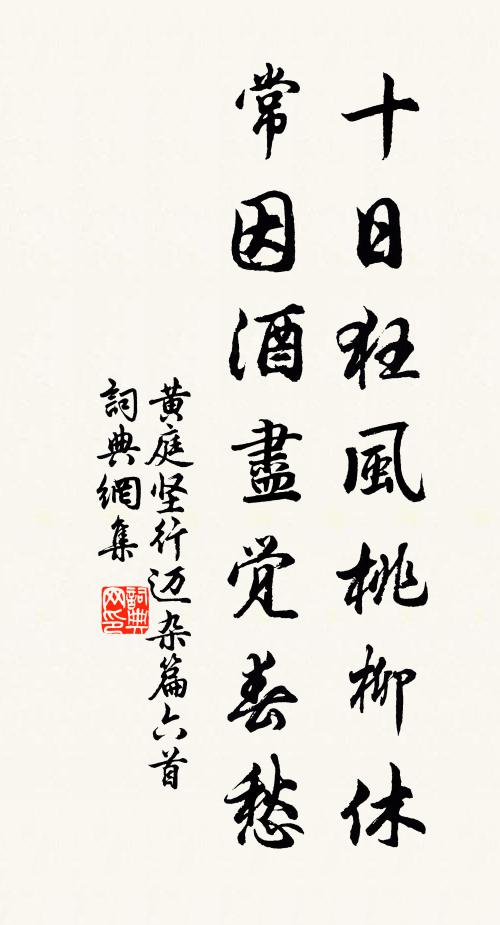 十日狂風桃柳休
常因酒盡覺春愁
黄庭坚行迈杂篇六首
詞典網集
詞典网印